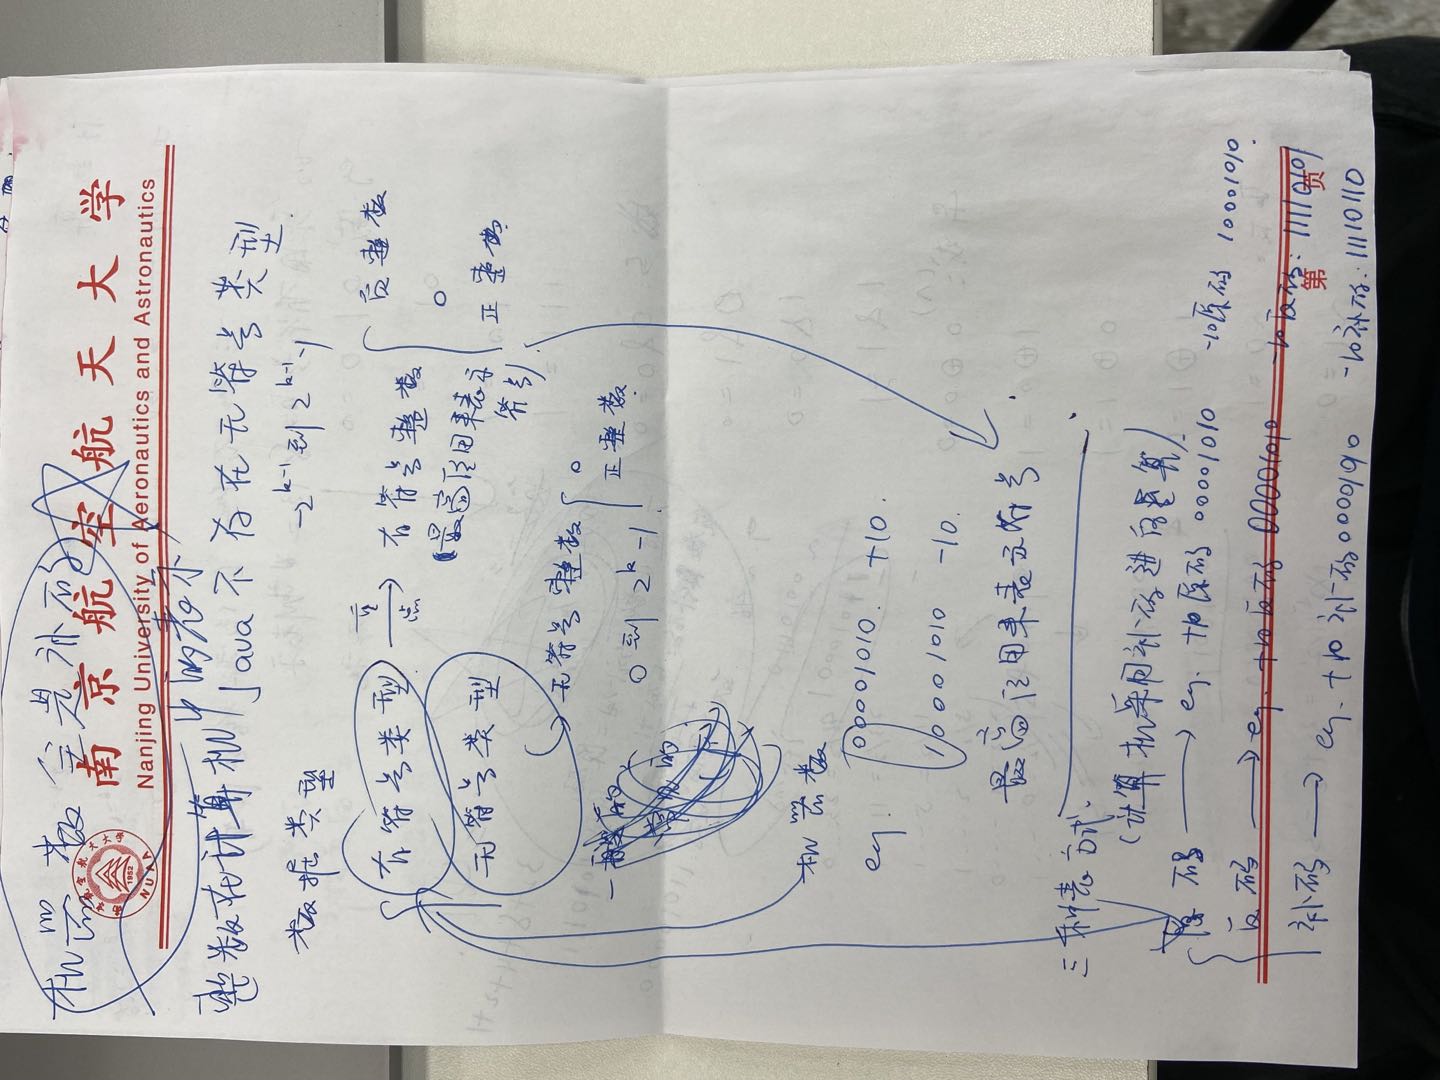 机器数全是补码
南京航空航天大学
1952
NUAA
Nanjing University of Aeronautics and Astronautics
整数在计算机中的表示
Java不存在无符号类型
数据类型
-2^{k-1}到2^{k-1}-1
有符号类型
重点
有符号整数
(最高位用来表示符号)
负整数
0
正整数
无符号类型
无符号整数
0
正整数
0到2^k-1
一般的
常见的
机器数
eg. 00001010. +10.
10001010 -10.
最高位用来表示符号
三种表方式.
(计算机采用补码进行运算)
原码 eg. +10原码 00001010 -10原码 10001010.
反码 eg. +10反码 00001010 -10反码: 11110101
第 页
补码 eg. +10 补码 00001010 -10补码: 11110110